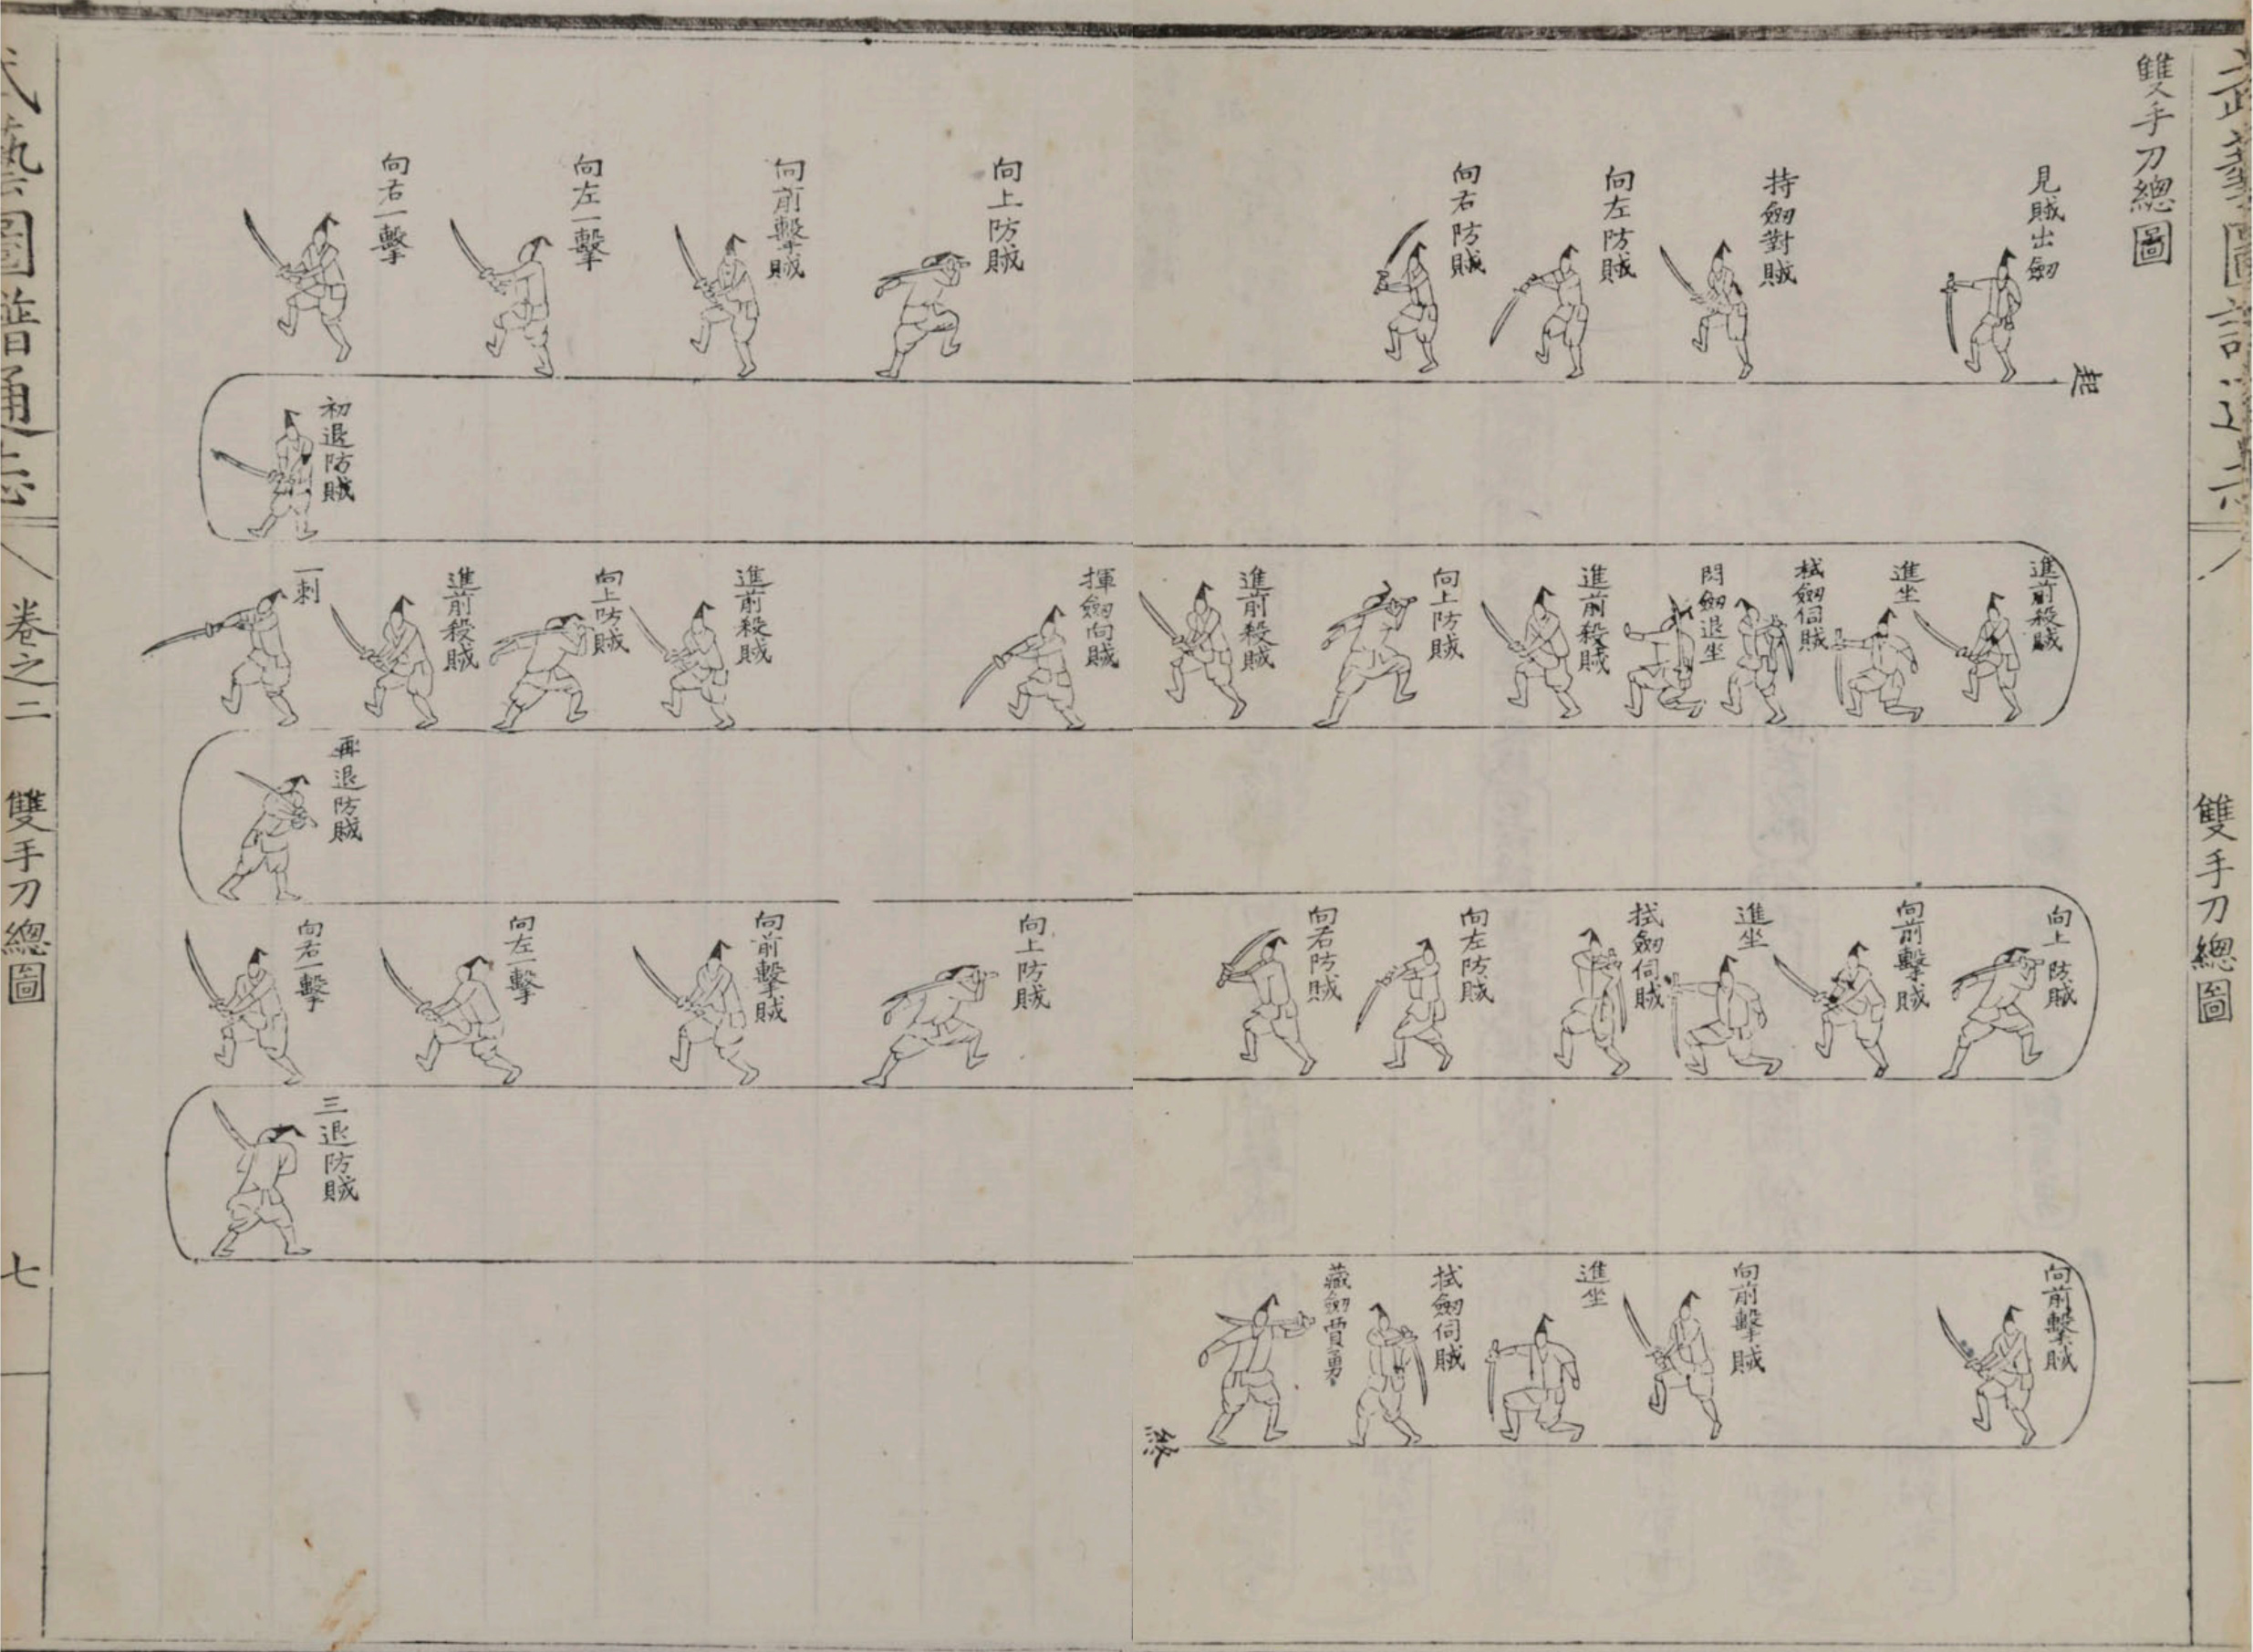 武藝圖譜通志
雙手刀總圖
雙手刀總圖
起
見賊出劒
持劒對賊
向左防賊
向右防賊
向上防賊
向前擊賊
向左一擊
向右一擊
初退防賊
進前殺賊
進坐
拭劒伺賊
閃劒退坐
進前殺賊
向上防賊
進前殺賊
揮劒向賊
進前殺賊
向上防賊
進前殺賊
一刺
再退防賊
向上防賊
向前擊賊
進坐
拭劒伺賊
向左防賊
向右防賊
向上防賊
向前擊賊
向左一擊
向右一擊
三退防賊
向前擊賊
向前擊賊
進坐
拭劒伺賊
藏劒賈勇
終
武藝圖譜通志
卷之二
雙手刀總圖
七